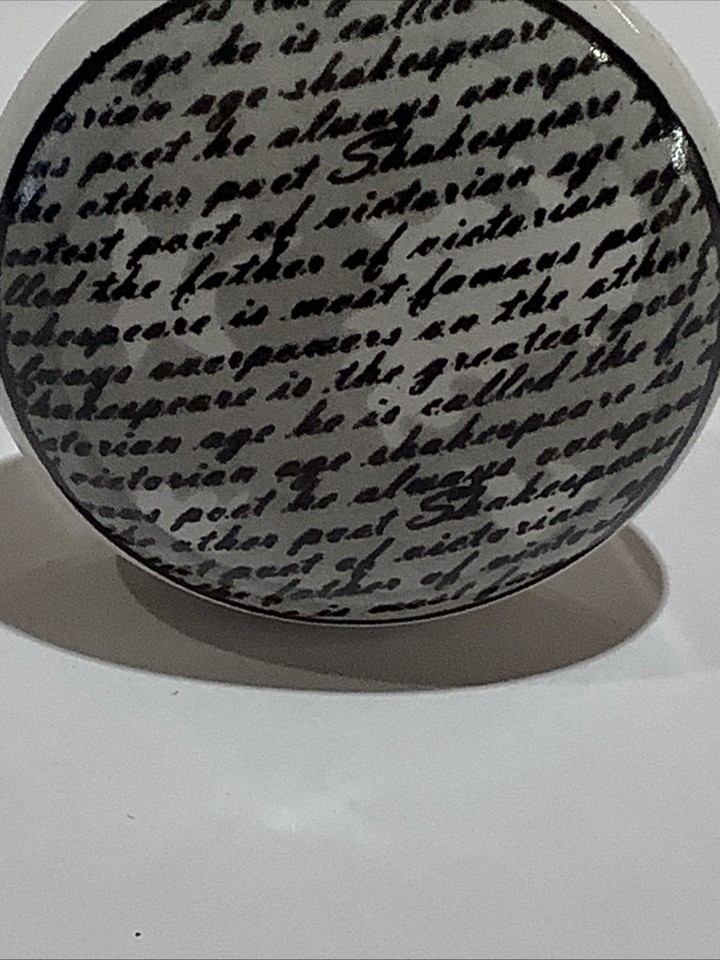 is called
age he is called
rian age shakespeare
poet he always overpo
he other poet Shakespeare
eatest poet of victorian age h
lled the father of victorian ag
akespeare is most famous poet
lways overpowers on the other
hakespeare is the greatest poet
ictorian age he is called the fat
victorian age shakespeare is
ous poet he always overpow
he other poet Shakespeare
test poet of victorian ag
the father of victori
is most fa